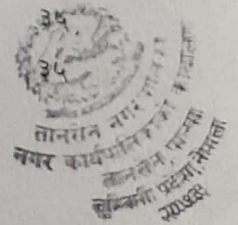 ३६
३५
तानसेन नगरपालिका
नगर कार्यपालिकाको कार्यालय
तानसेन, पाल्पा
लुम्बिनी प्रदेश, नेपाल